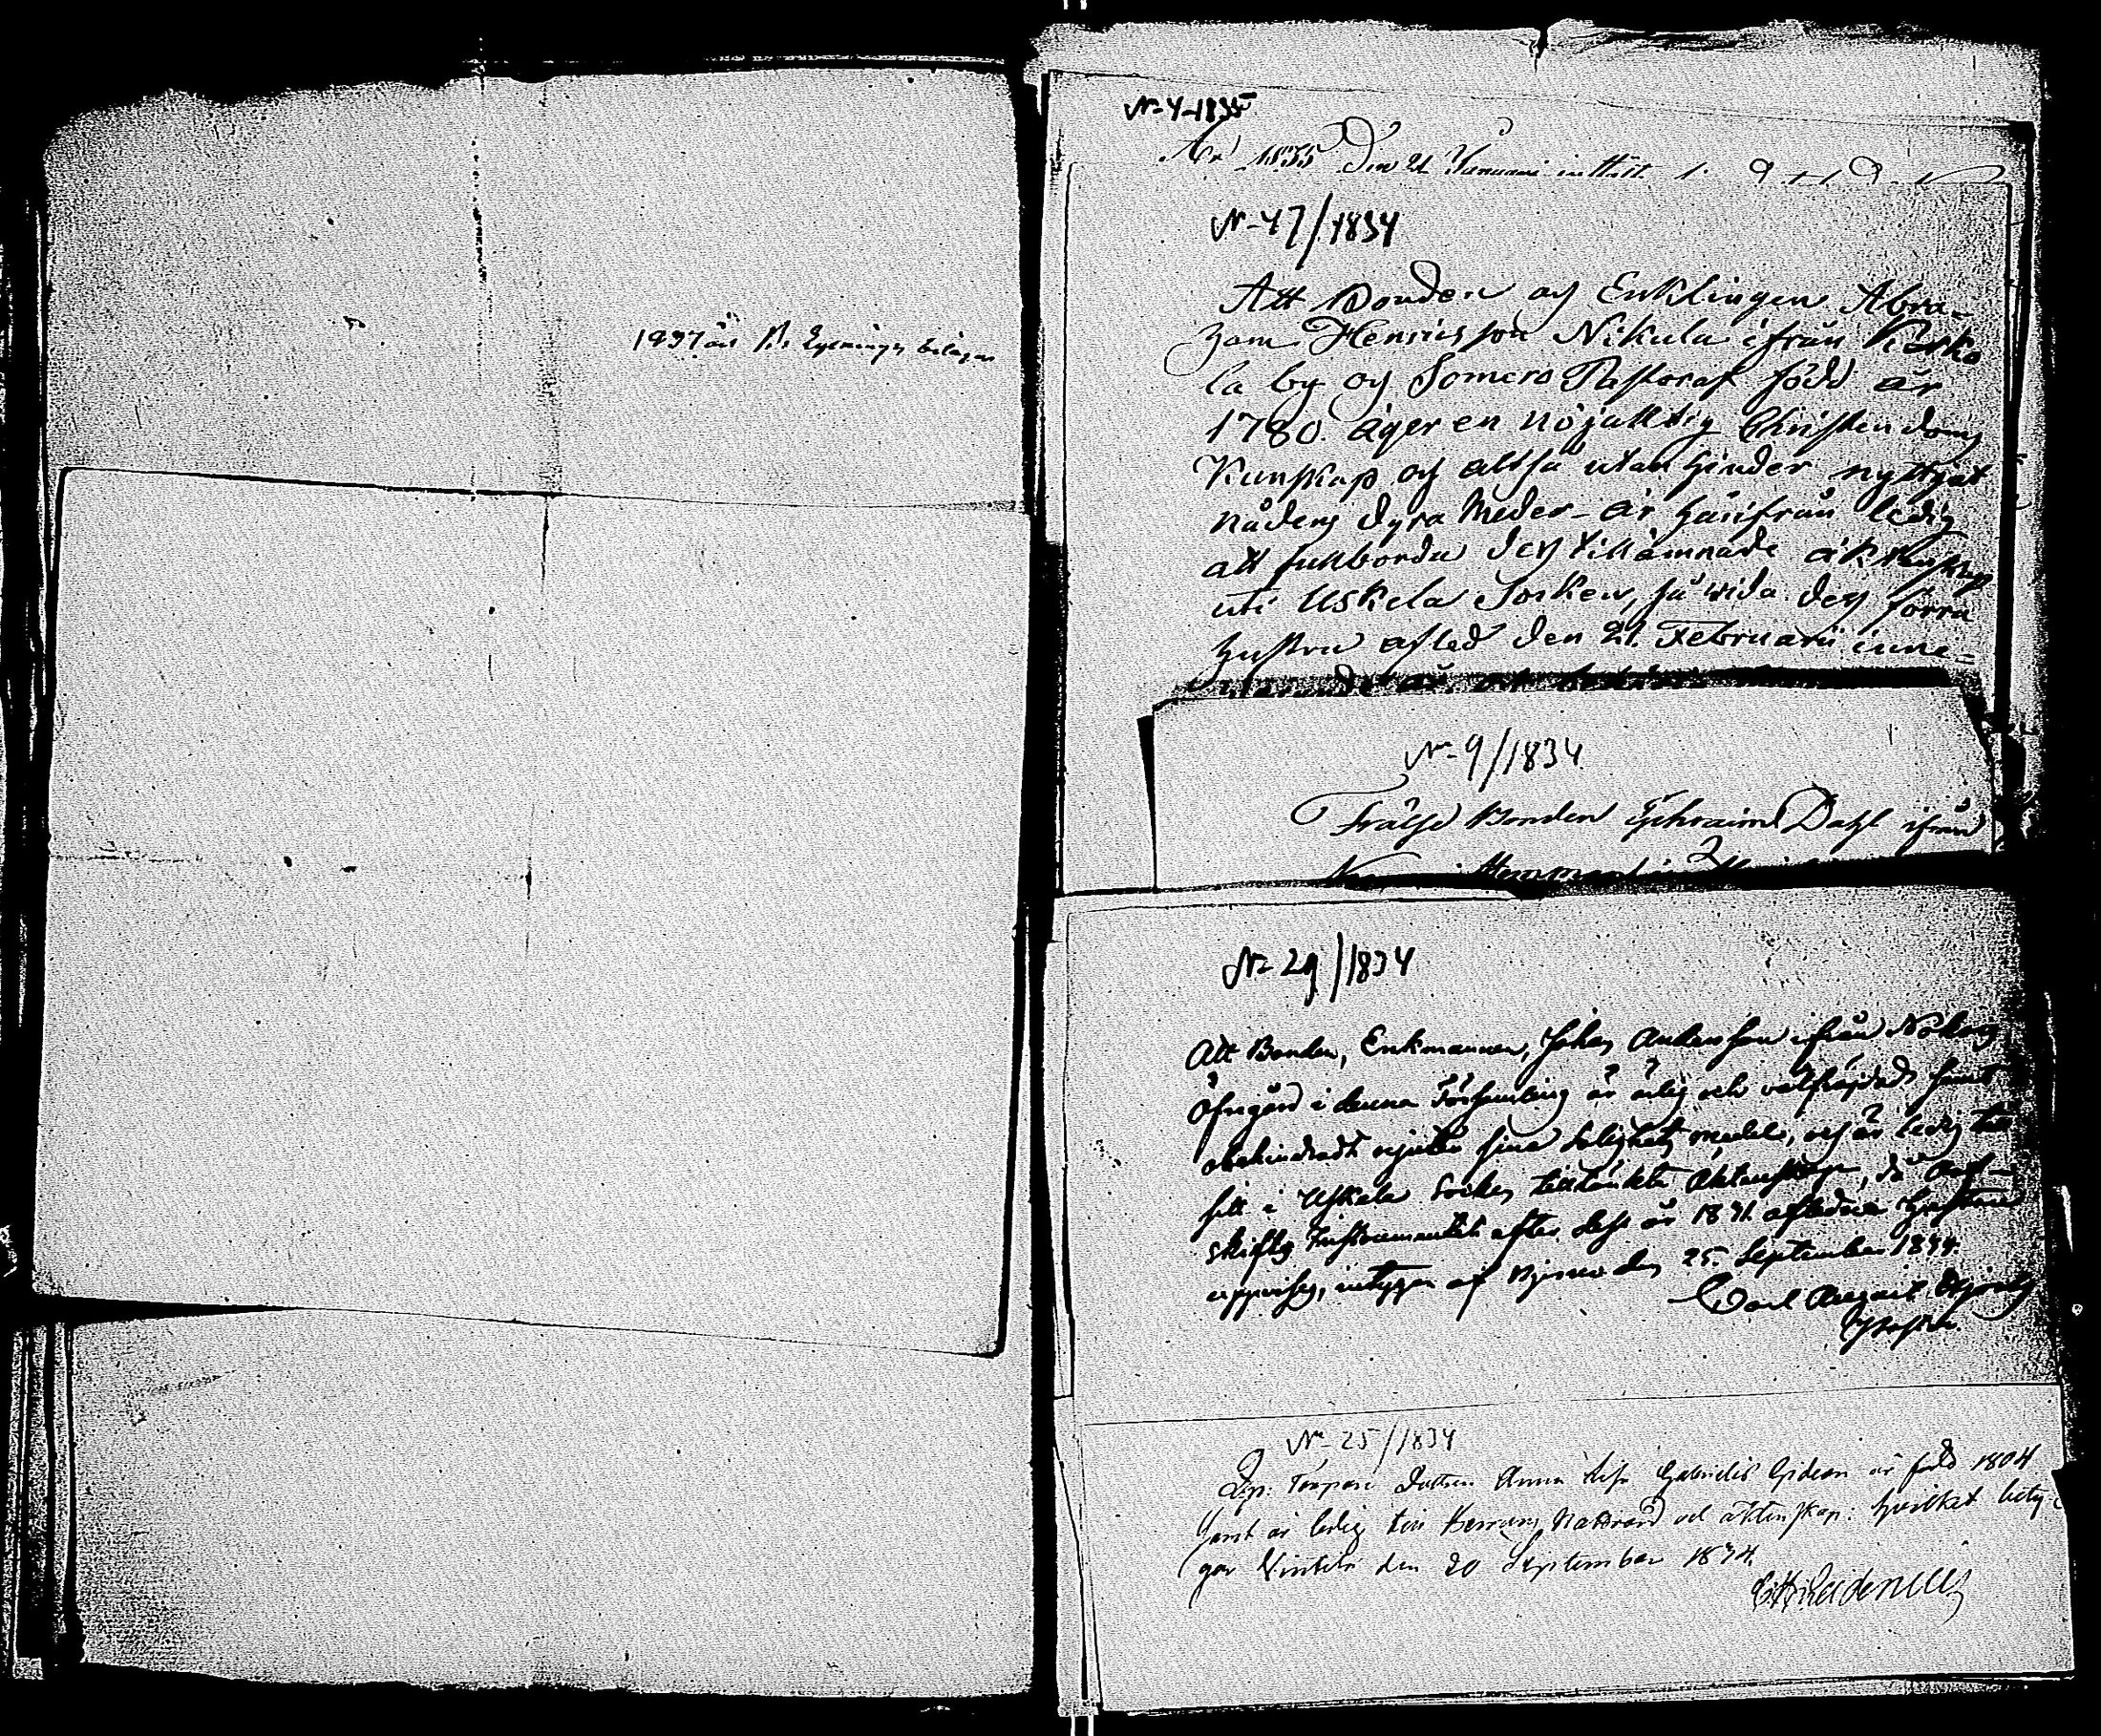 1837 års Lysnings bilagor
N-4-1835
1835 Den 21 Januarii
N-47/1834
Att Bonden och Enklingen Abra-
ham Henricsson Nikula ifrån Kasko
la by och Somero Pastorat född år
1780. äger en nöjaktig Christendoms
Kunskap och altså utan hinder nyttjat
nådens dyra Medel - är härifrån ledig
att fullborda des tillämnade äktenskap
uti Uskela Socken, så wida des förra
hustru afled den 21. Februarii inne-
warande år, och
N-9/1834
Frälse Bonden Ephraim Dahl ifrån
N-29/1834
Att Bonden, Enkmannen, Johan Andersson ifrån
Öfvergård i denna Församling är ärlig och välfräjdad samt
obehindradt njuter sina salighets medel, och är ledig till
sitt i Uskela Socken tilltänkta Äktenskap, då Arf-
skiftes Instrumentet efter dess år 1831 aflidna Hustru
uppvises, intygar af Bjerno den 25. September 1834.
Carl August
N-25/1834
Dp. Torpare Dottren Anna Lisa Gabriels Gideon är född 1804
samt är ledig till Herrans Nattvard och äktenskap: hvilket bety-
gar den 20 September 1834.